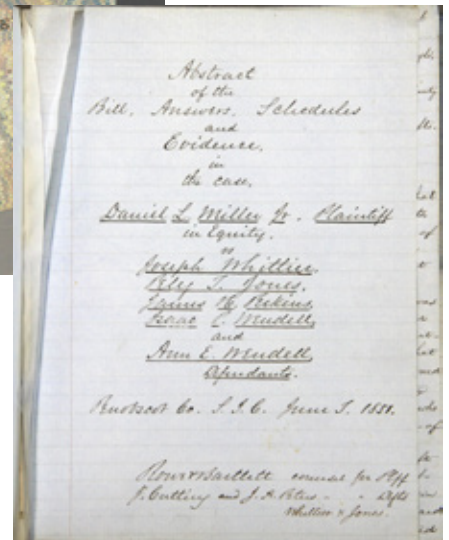 Abstract
of the
Bill, Answers, Schedules
and
Evidence,
in
the case,
Daniel L Miller Jr. Plaintiff
in Equity.
vs
Joseph Whittier,
T. Jones,
James E. Perkins,
Isaac C. Wendell,
and
Ann E. Wendell,
Defendants.
Penobscot Co. S. J. C. June T. 1851.
Rowe & Bartlett counsel for Plff
J. Cutting and J. A. Peters - - Defts
Whittier & Jones.